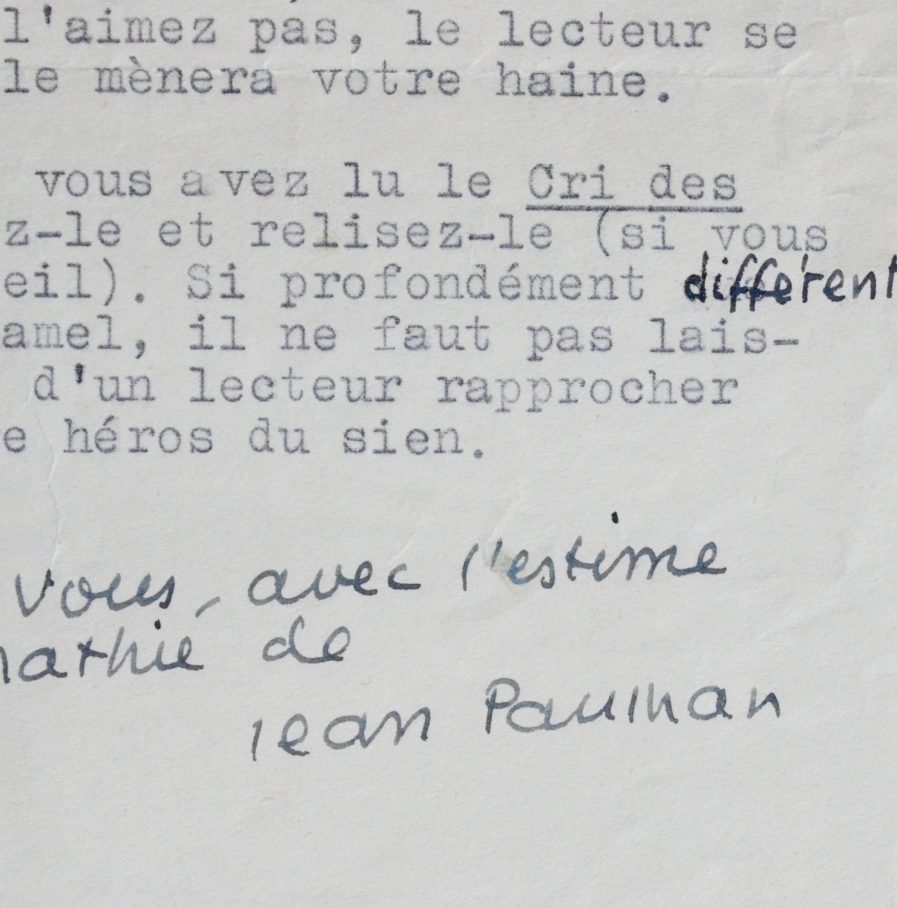 l'aimez pas, le lecteur se
le mènera votre haine.
vous avez lu le Cri des
z-le et relisez-le (si vous
eil). Si profondément différent
amel, il ne faut pas lais-
d'un lecteur rapprocher
e héros du sien.
vous, avec l'estime
athie de
Jean Paulhan